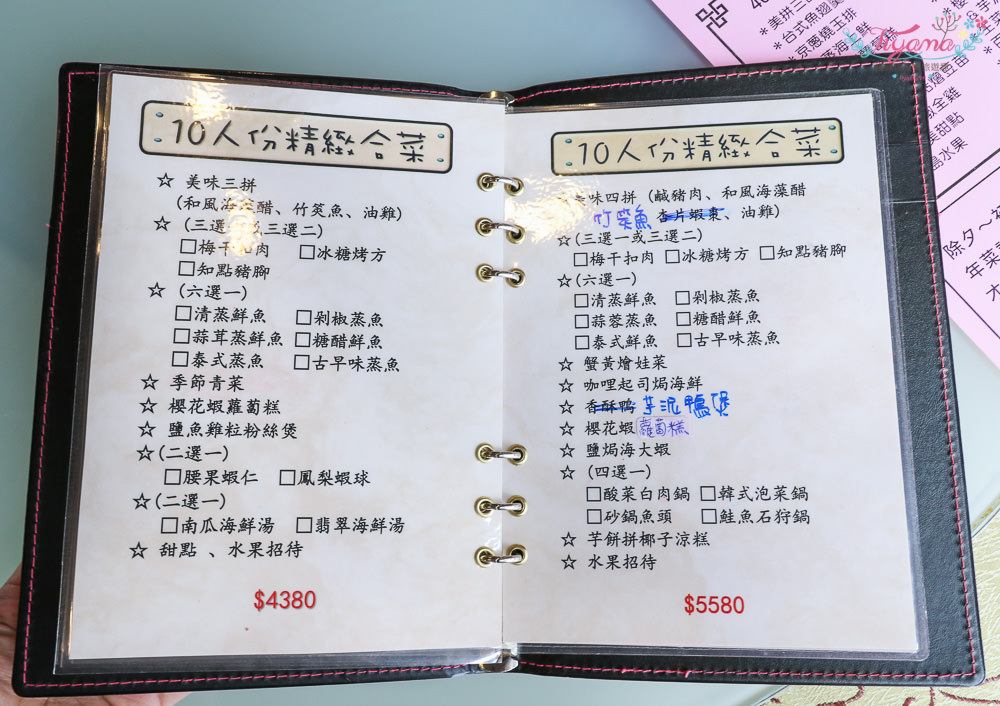 10人份精緻合菜
☆ 美味三拼
(和風海藻醋、竹筴魚、油雞)
☆ (三選一或三選二)
□梅干扣肉 □冰糖烤方
□知點豬腳
☆ (六選一)
□清蒸鮮魚 □剁椒蒸魚
□蒜茸蒸鮮魚 □糖醋鮮魚
□泰式蒸魚 □古早味蒸魚
☆ 季節青菜
☆ 櫻花蝦蘿蔔糕
☆ 鹽魚雞粒粉絲煲
☆(二選一)
□腰果蝦仁 □鳳梨蝦球
☆(二選一)
□南瓜海鮮湯 □翡翠海鮮湯
☆ 甜點 、水果招待
$4380
10人份精緻合菜
味四拼 (鹹豬肉、和風海藻醋
竹筴魚 杏片蝦棗、油雞)
☆(三選一或三選二)
□梅干扣肉 □冰糖烤方 □知點豬腳
☆(六選一)
□清蒸鮮魚 □剁椒蒸魚
□蒜蓉蒸魚 □糖醋鮮魚
□泰式鮮魚 □古早味蒸魚
☆ 蟹黃燴娃菜
☆ 咖哩起司焗海鮮
☆ 香酥鴨 芋泥鴨煲
☆ 櫻花蝦蘿蔔糕
☆ 鹽焗海大蝦
☆ (四選一)
□酸菜白肉鍋 □韓式泡菜鍋
□砂鍋魚頭 □鮭魚石狩鍋
☆ 芋餅拼椰子涼糕
☆ 水果招待
$5580
*美拼三
*台式魚翅
京蔥燒玉排
全雞
美甜點
水果
除夕～
年菜
Tiyama